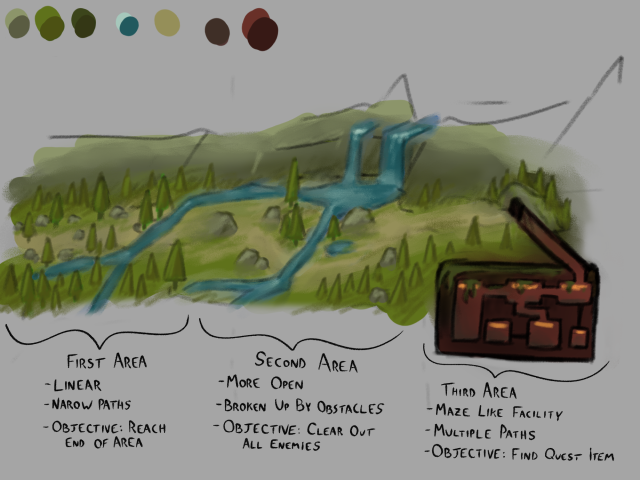 First Area
- Linear
- Narow Paths
- Objective: Reach
End of Area
Second Area
- More Open
- Broken Up By Obstacles
- Objective: Clear Out
All Enemies
Third Area
- Maze Like Facility
- Multiple Paths
- Objective: Find Quest Item